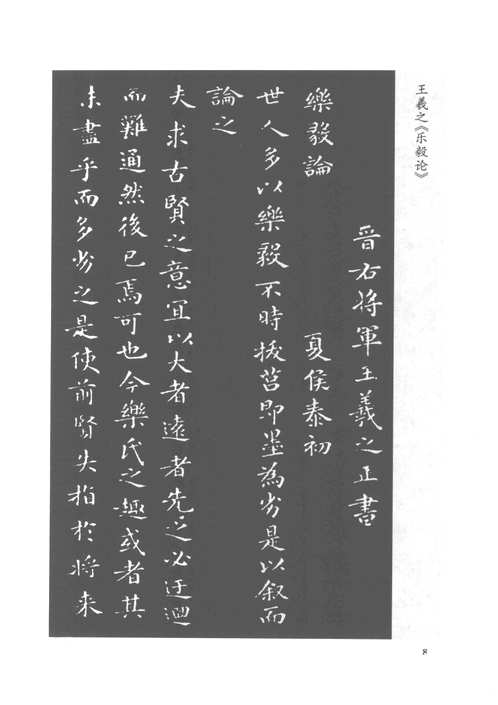 王羲之《乐毅论》
晋右将軍王羲之正書
樂毅論 夏侯泰初
世人多以樂毅不時拔莒即墨為劣是以叙而
論之
夫求古賢之意宜以大者遠者先之必迂迴
而難通然後已焉可也今樂氏之趣或者其
未盡乎而多劣之是使前賢失指於将来
8